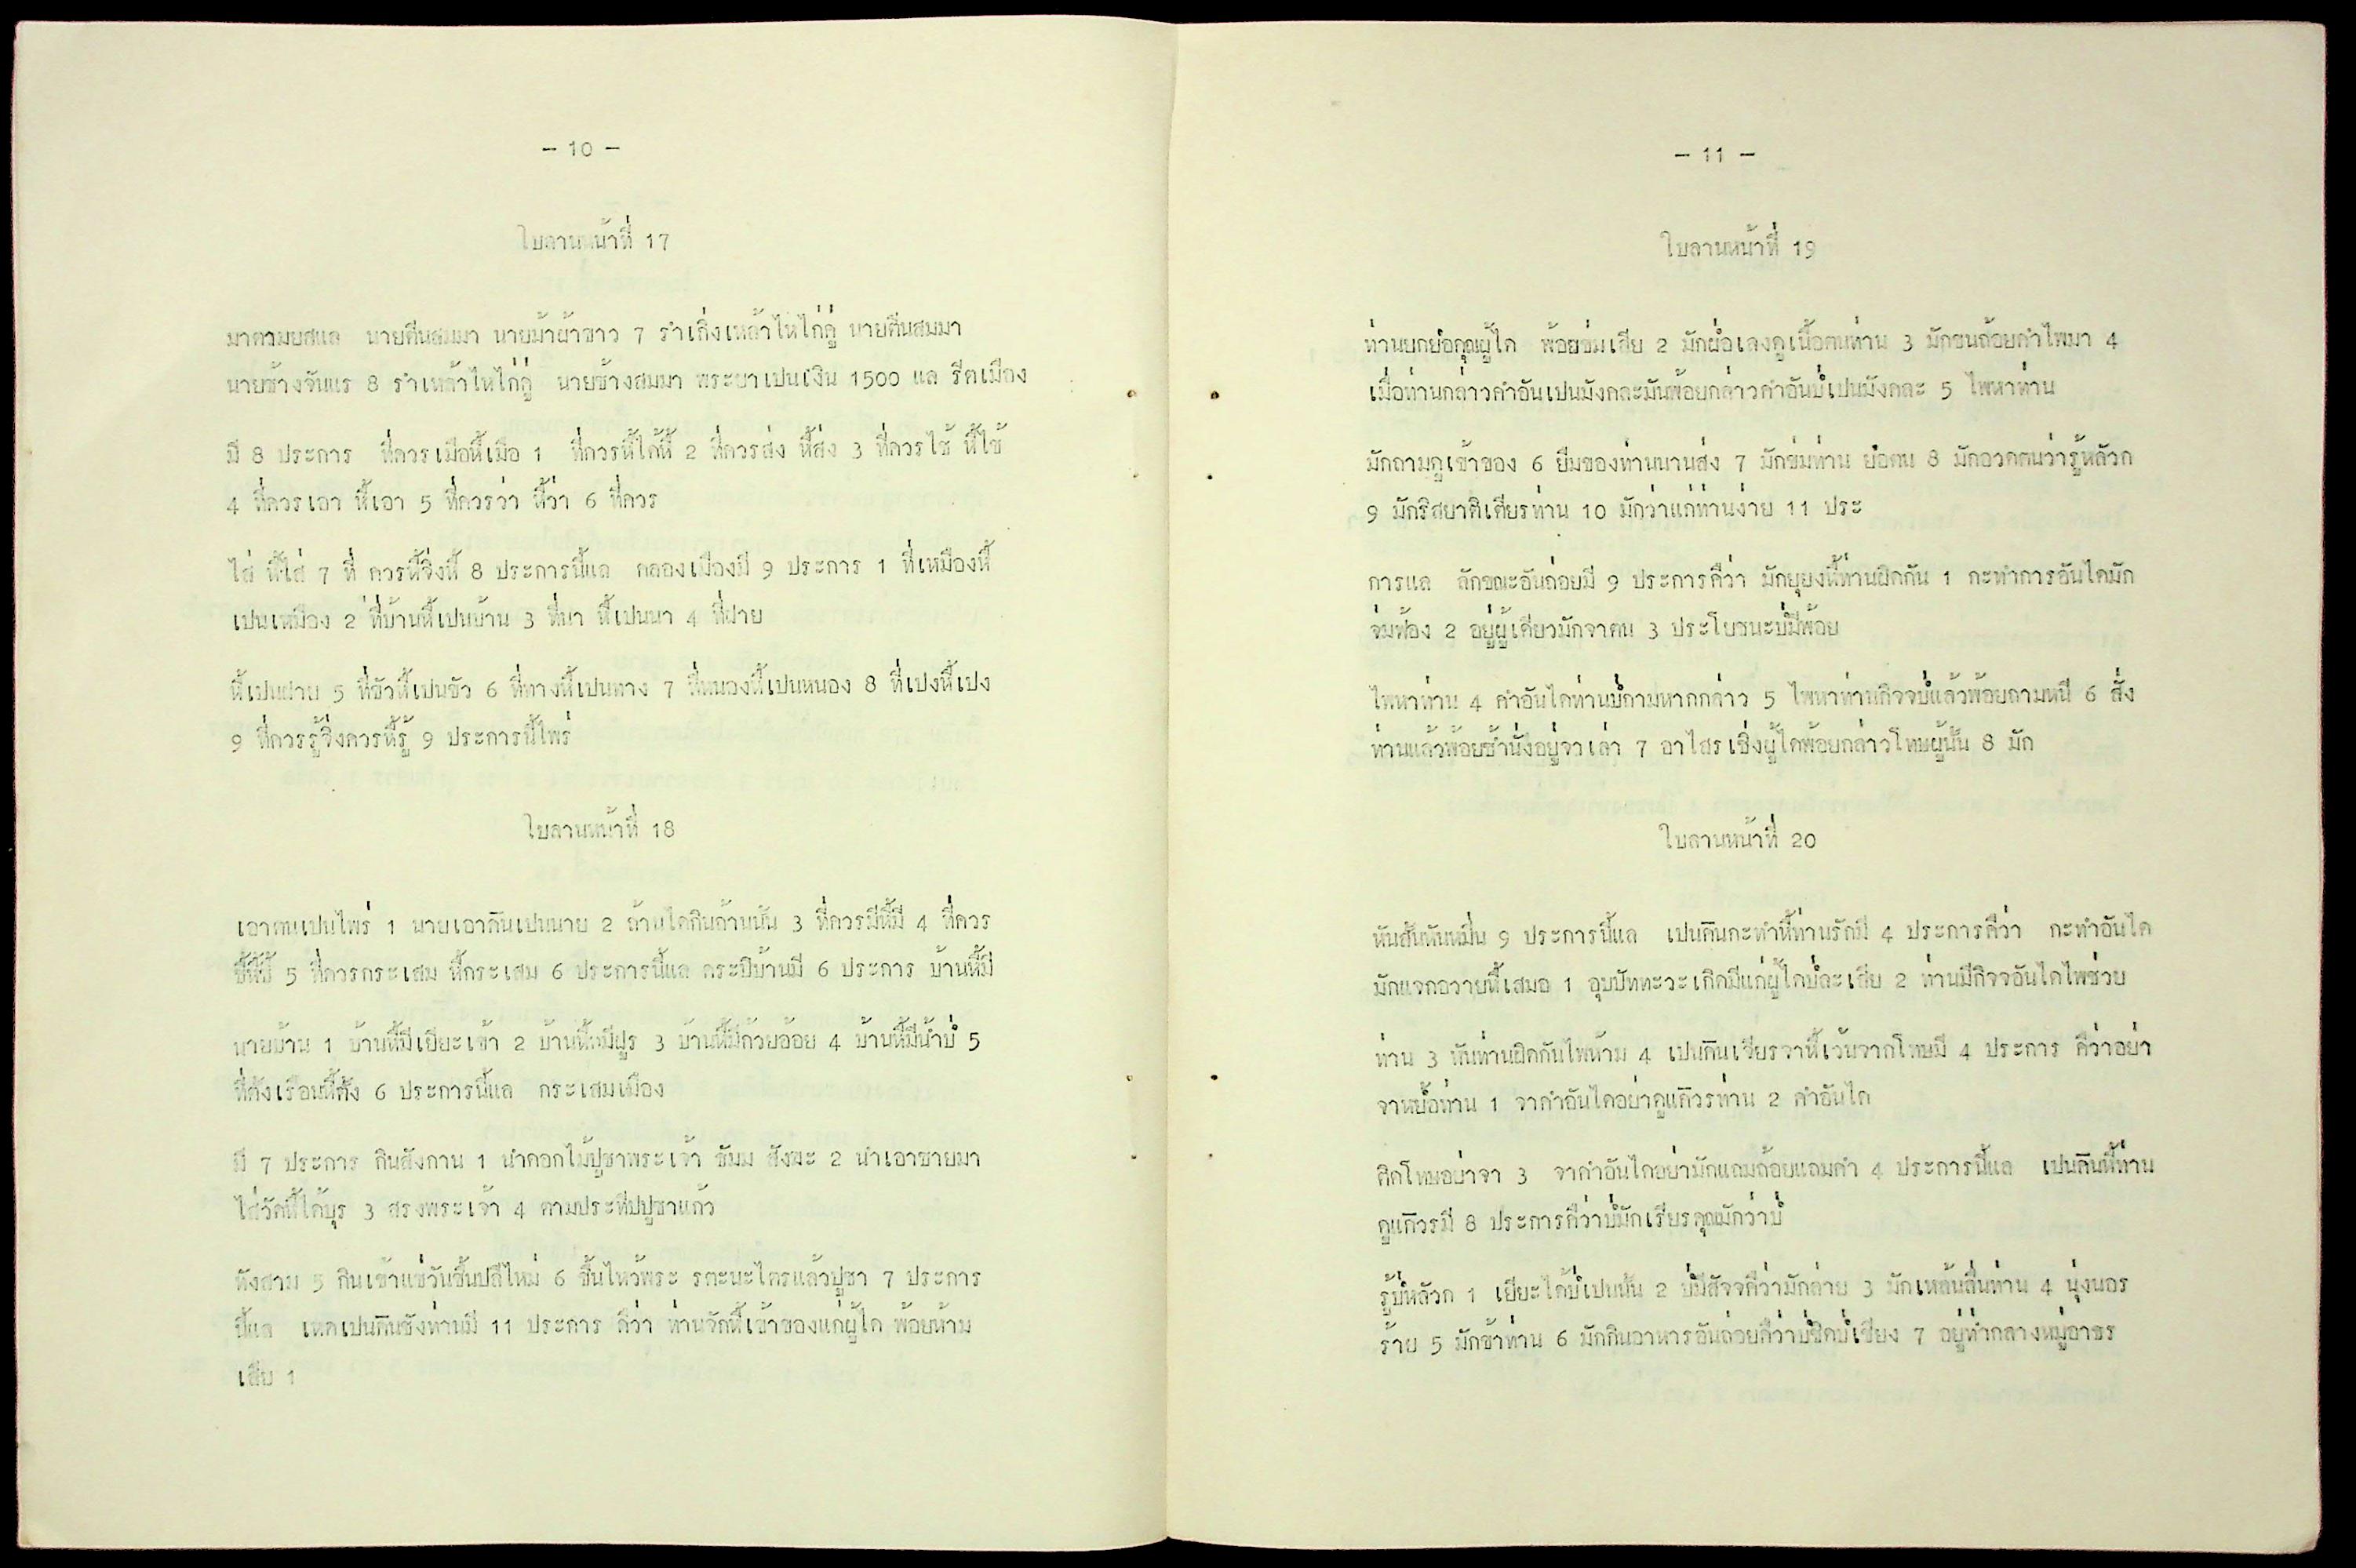 - 10 -
ใบลานหน้าที่ 17
มาตามยสแล นายตีนสมมา นายม้าผ้าขาว 7 รำเกิ่งเหล้าไหไก่คู่ นายตีนสมมา
นายช้างจันแร 8 รำเหล้าไหไก่คู่ นายช้างสมมา พระยาเปนเงิน 1500 แล รีตเมือง
มี 8 ประการ ที่ควรเมือหื้เมือ 1 ที่ควรหื้ได้หื้ 2 ที่ควรส่ง หื้ส่ง 3 ที่ควรไช้ หื้ไช้
4 ที่ควรเอา หื้เอา 5 ที่ควรว่า หื้ว่า 6 ที่ควร
ไส่ หื้ไส่ 7 ที่ ควรหื้จิ่งหื้ 8 ประการนี้แล คลองเมืองมี 9 ประการ 1 ที่เหมืองหื้
เปนเหมือง 2 ที่บ้านหื้เปนบ้าน 3 ที่นา หื้เปนนา 4 ที่ฝาย
หื้เปนฝาย 5 ที่ขัวหื้เปนขัว 6 ที่ทางหื้เปนทาง 7 ที่หนองหื้เปนหนอง 8 ที่เปงหื้เปง
9 ที่ควรรู้จิ่งควรหื้รู้ 9 ประการนี้ไพร่
ใบลานหน้าที่ 18
เอาตนเปนไพร่ 1 นายเอากันเปนนาย 2 ด้านใดกินด้านนั้น 3 ที่ควรมีหื้มี 4 ที่ควร
ขี้หื้ขี้ 5 ที่ควรกระเสม หื้กระเสม 6 ประการนี้แล กระบิบ้านมี 6 ประการ บ้านหื้มี
นายบ้าน 1 บ้านหื้มีเยียะเข้า 2 บ้านหื้มีปูร 3 บ้านหื้มีกัวยอ้อย 4 บ้านหื้มีน้ำบ่ 5
ที่ตั้งเรือนหื้ตั้ง 6 ประการนี้แล กระเสมเมือง
มี 7 ประการ กินสังกาน 1 นำดอกไม้ปูชาพระเจ้า ธัมม สังฆะ 2 นำเอาซายมา
ไส่วัดหื้ได้บุร 3 สรงพระเจ้า 4 ตามประทีปปูชาแก้ว
ทังสาม 5 กินเข้าแช่วันขึ้นปลีไหม่ 6 ขึ้นไหว้พระ รตะนะไตรแล้วปูชา 7 ประการ
นี้แล เหตเปนคินชังท่านมี 11 ประการ คืว่า ท่านจักหื้เข้าของแก่ผู้ใด พ้อยห้าม
เสีย 1
- 11 -
ใบลานหน้าที่ 19
ท่านยกย่อคุณผู้ใด พ้อยข่มเสีย 2 มักผ่อเลงดูเนื้อตนท่าน 3 มักขนถ้อยคำไพมา 4
เมื่อท่านกล่าวคำอันเปนมังคละมันพ้อยกล่าวคำอันบ่เปนมังคละ 5 ไพหาท่าน
มักถามดูเข้าของ 6 ยืมของท่านนานส่ง 7 มักข่มท่าน ย่อตน 8 มักอวดตนว่ารู้หลัวก
9 มักริสยาติเตียรท่าน 10 มักว่าแก่ท่านง่าย 11 ประ
การแล ลักขณะอันถ่อยมี 9 ประการคืว่า มักยุยงหื้ท่านผิดกัน 1 กะทำการอันใดมัก
จ่มฟ้อง 2 อยู่ผู้เดียวมักจาตน 3 ประโยชนะบ่มีพ้อย
ไพหาท่าน 4 คำอันใดท่านบ่ถามหากกล่าว 5 ไพหาท่านกิจจบ่แล้วพ้อยถามหนี 6 สั่ง
ท่านแล้วพ้อยซ้ำนั่งอยู่จาเล่า 7 อาไสรเชิ่งผู้ใดพ้อยกล่าวโทษผู้นั้น 8 มัก
ใบลานหน้าที่ 20
หันสั้นหันหมิ่น 9 ประการนี้แล เปนคินกะทำหื้ท่านรักมี 4 ประการคืว่า กะทำอันใด
มักแจกอวายหื้เสมอ 1 อุบปัททะวะเกิดมีแก่ผู้ใดบ่ละเสีย 2 ท่านมีกิจจอันใดไพช่วย
ท่าน 3 หันท่านผิดกันไพห้าม 4 เปนคินเจียรจาหื้เว้นจากโทษมี 4 ประการ คืว่าอย่า
จาหยื้อท่าน 1 จาคำอันใดอย่าดูแคิวรท่าน 2 คำอันใด
ติดโทษอย่าจา 3 จาคำอันใดอย่ามักแถมถ้อยแถมคำ 4 ประการนี้แล เปนคินหื้ท่าน
ดูแคิวรมี 8 ประการคืว่าบ่มักเรียรคุณมักว่าบ่
รู้บ่หลัวก 1 เยียะได้บ่เปนนั้น 2 บ่มีสัจจคืว่ามักล่าย 3 มักเหล้นลื่นท่าน 4 นุ่งนอร
ร้าย 5 มักข้าท่าน 6 มักกินอาหารอันถ่อยคืว่าบ่ชิดบ่เซียง 7 อยู่ท่ำกลางหมู่อาธร